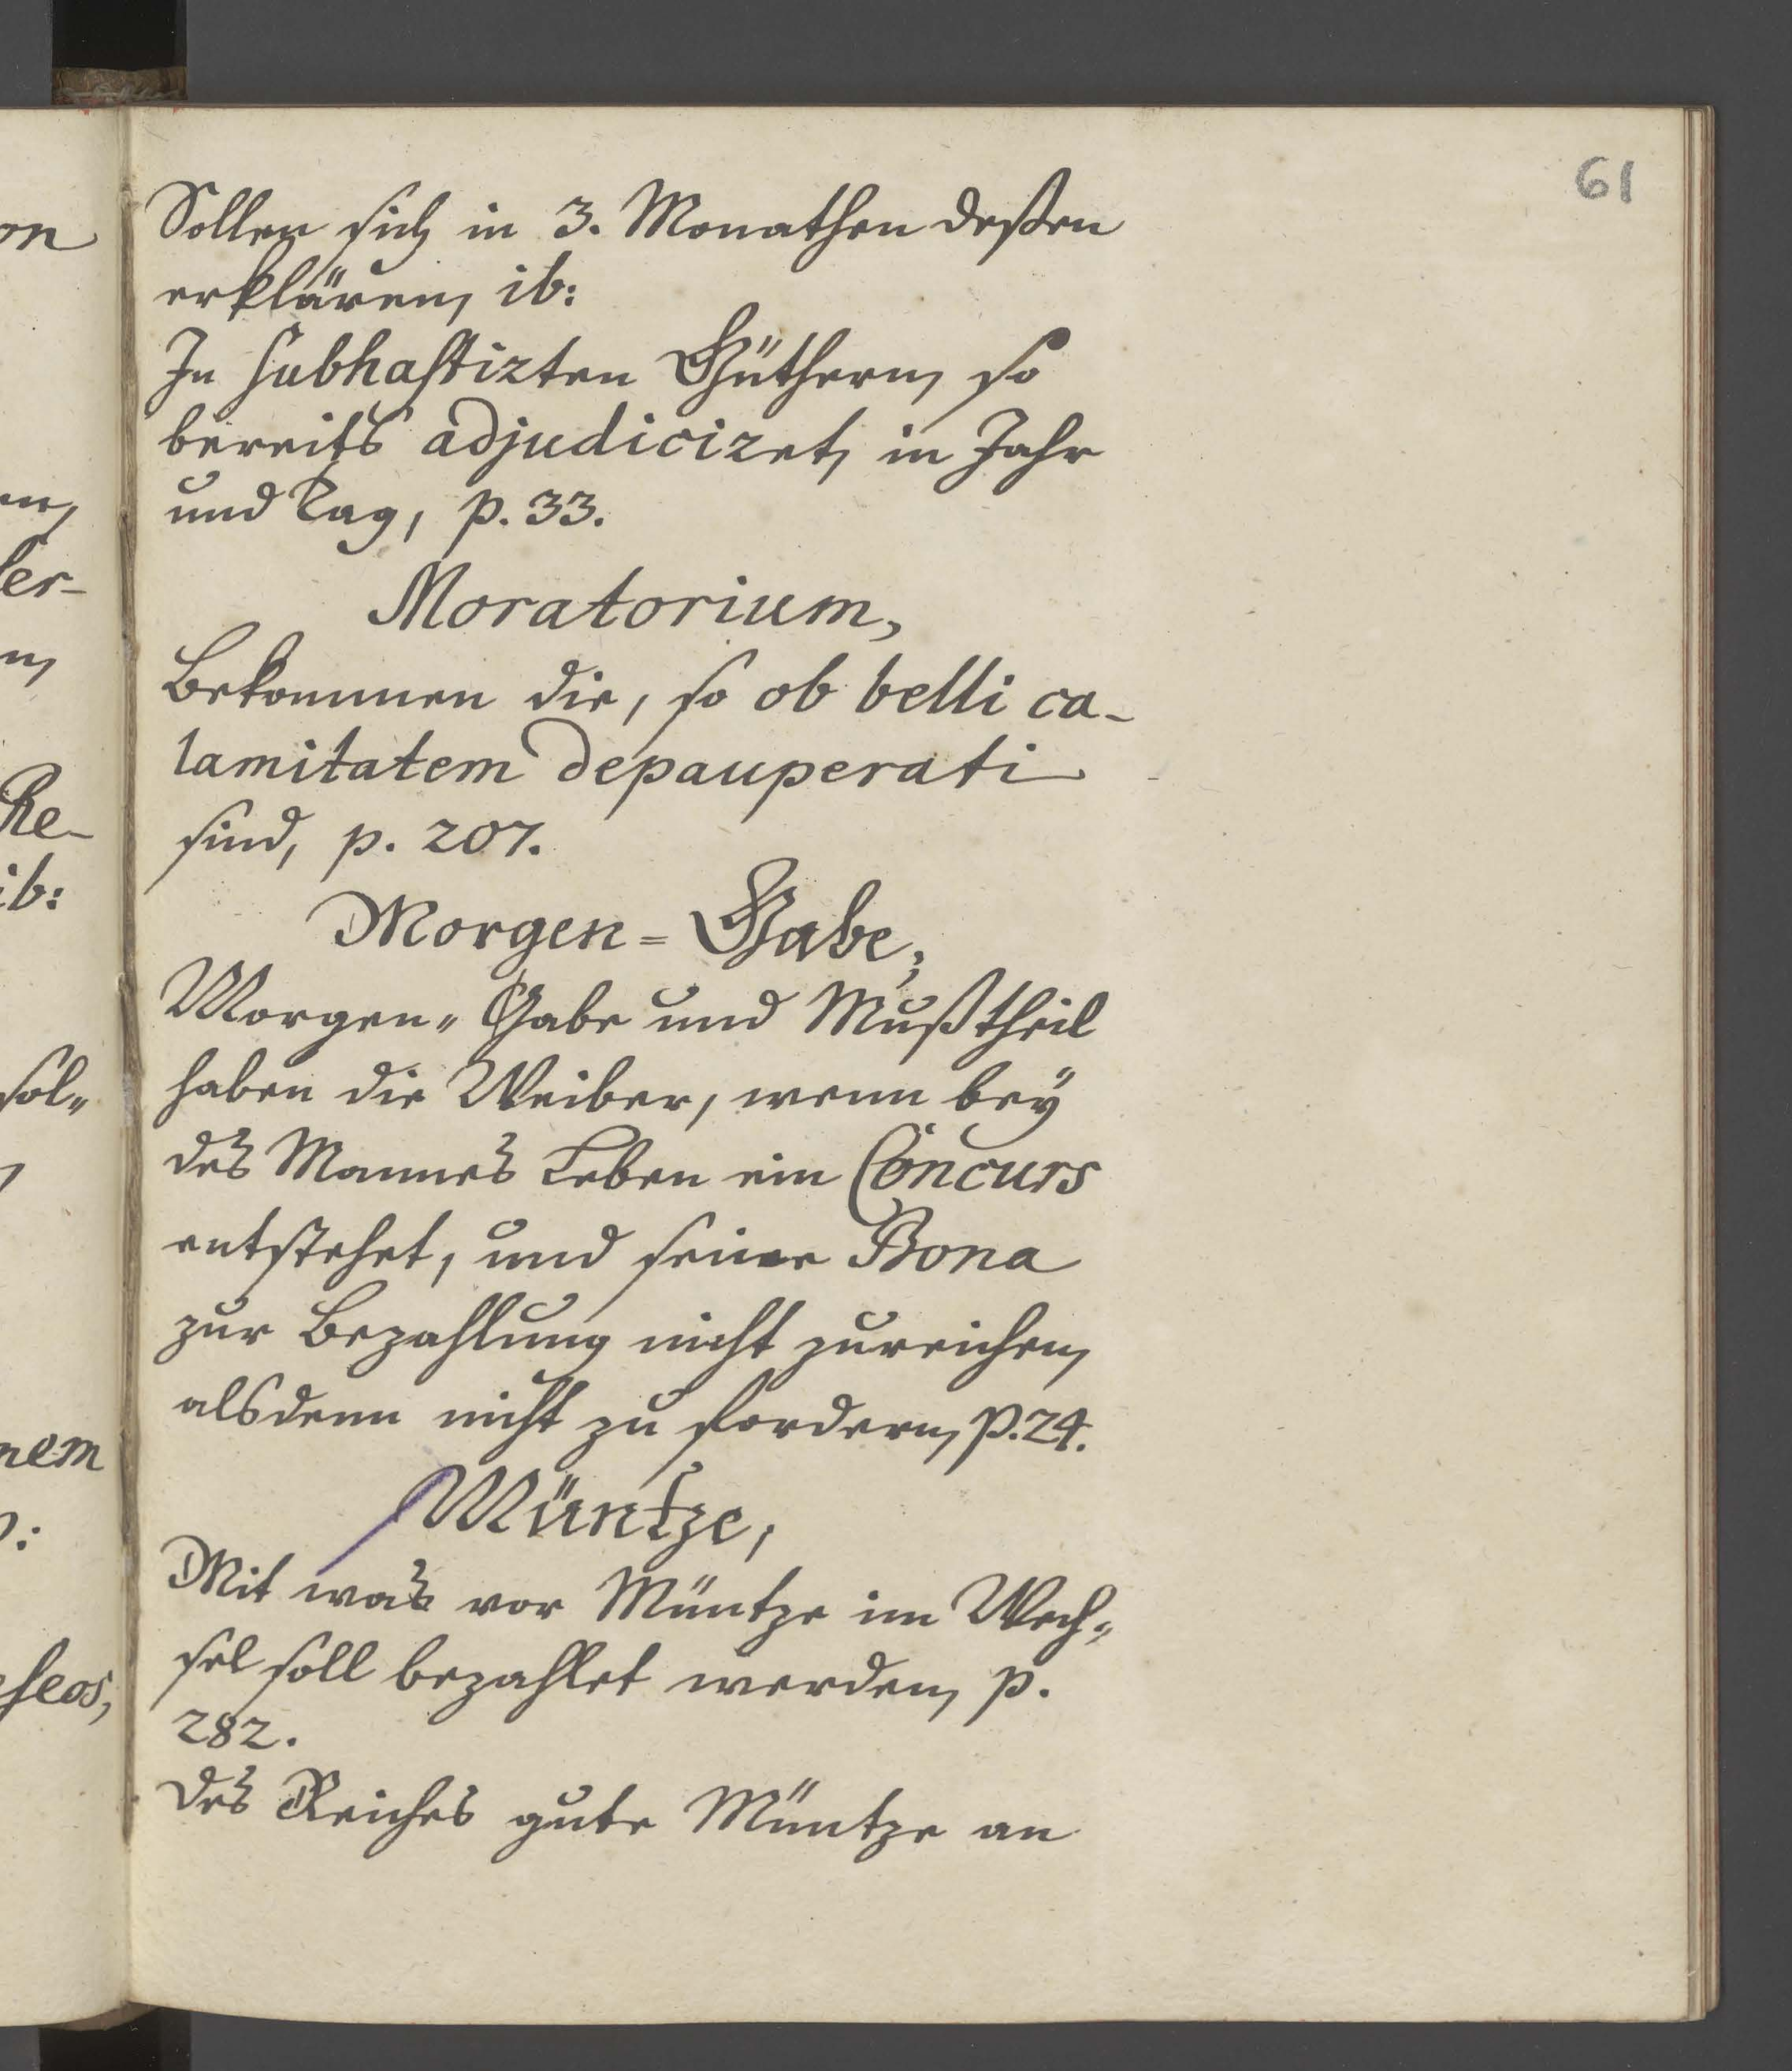 61
Sollen sich in 3. Monathen deßen
erklären, ib:
In subhastirten Güthern, so
bereits adjudiciret, in Jahr
und Tag, p. 33.
Moratorium,
Bekommen die, so ob belli ca-
lamitatem depauperati
sind, p. 207.
Morgen=Gabe,
Morgen=Gabe und Mußtheil
haben die Weiber, wenn beÿ
des Mannes Leben ein Concurs
entstehet, und seine Bona
zur Bezahlung nicht zureichen,
alsdenn nicht zu fordern, p. 24.
Müntze,
Mit was vor Müntze im Wech=
sel soll bezahlet werden, p.
282.
des Reiches gute Müntze an